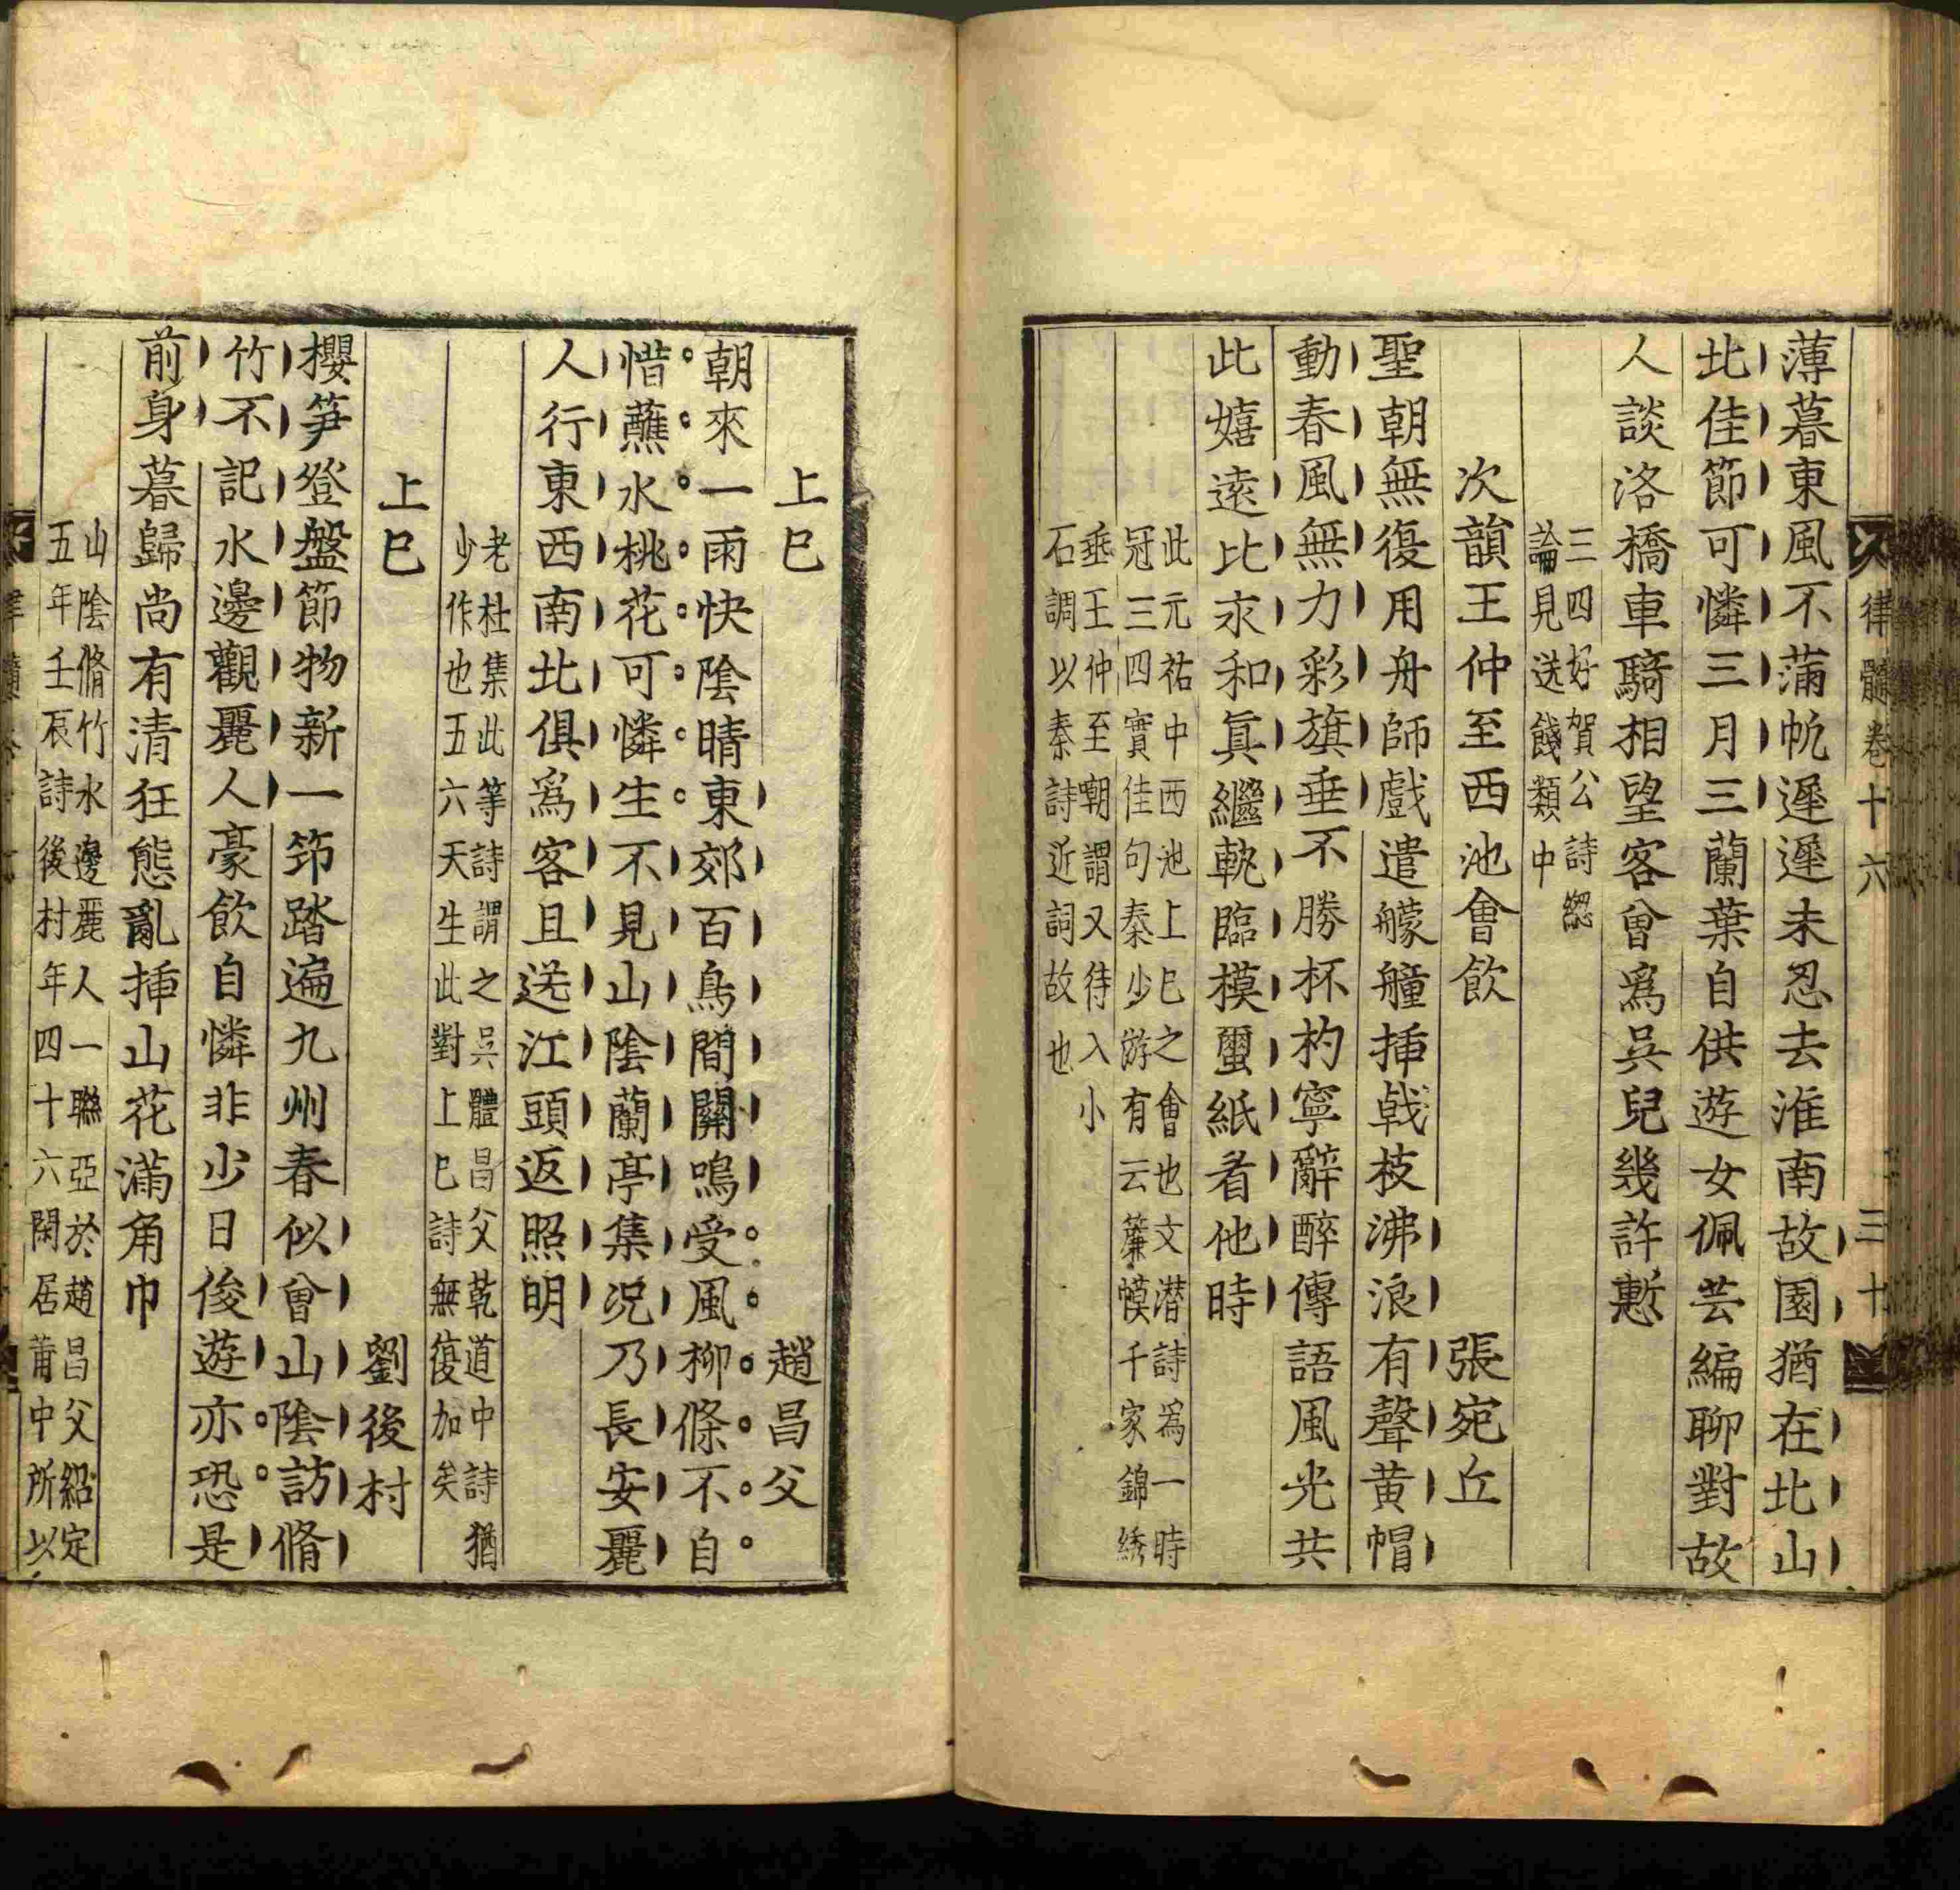 律髓卷十六 三十
薄暮東風不蒲帆遲遲未忍去淮南故園猶在北山
北佳節可憐三月三蘭葉自供遊女佩芸編聊對故
人談洛橋車騎相望客曾爲吳兒幾許慙
三四好賀公詩緫
論見送餞類中
次韻王仲至西池會飲 張宛丘
聖朝無復用舟師戲遣艨艟挿戟枝沸浪有聲黄帽
動春風無力彩旗垂不勝杯杓寧辭醉傳語風光共
此嬉逺比永和真繼軌臨模蠒紙看他時
此元祐中西池上巳之會也文潜詩爲一時
冠三四實佳句秦少游有云簾幙千家錦綉
垂王仲至嘲謂又待入小
石調以秦詩近詞故也
上巳 趙昌父
朝來一雨快陰晴東郊百鳥間關鳴受風柳條不自
惜蘸水桃花可憐生不見山隂蘭亭集况乃長安麗
人行東西南北俱爲客且送江頭返照明
老杜集此等詩謂之吳體昌父乾道中詩猶
少作也五六天生此對上巳詩無復加矣
上巳 劉後村
櫻笋登盤節物新一笻踏遍九州春似曾山隂訪脩
竹不記水邊觀麗人豪飲自憐非少日俊遊亦恐是
前身暮歸尚有清狂態亂挿山花滿角巾
山隂脩竹水邊麗人一聯亞於趙昌父紹定
五年壬辰詩後村年四十六閑居莆中所以